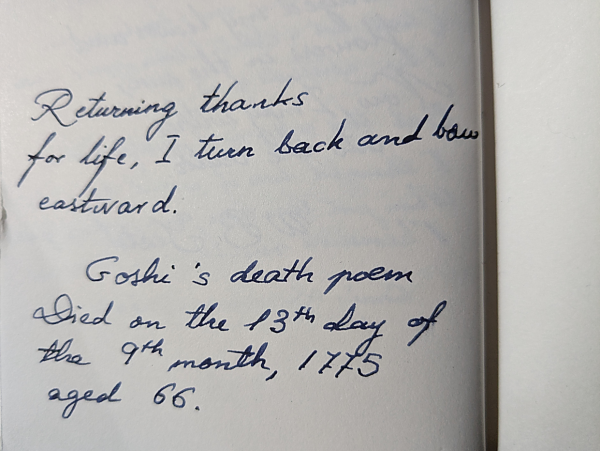 Returning thanks
for life, I turn back and bow
eastward.
Goshi's death poem
Died on the 13th day of
the 9th month, 1775
aged 66.